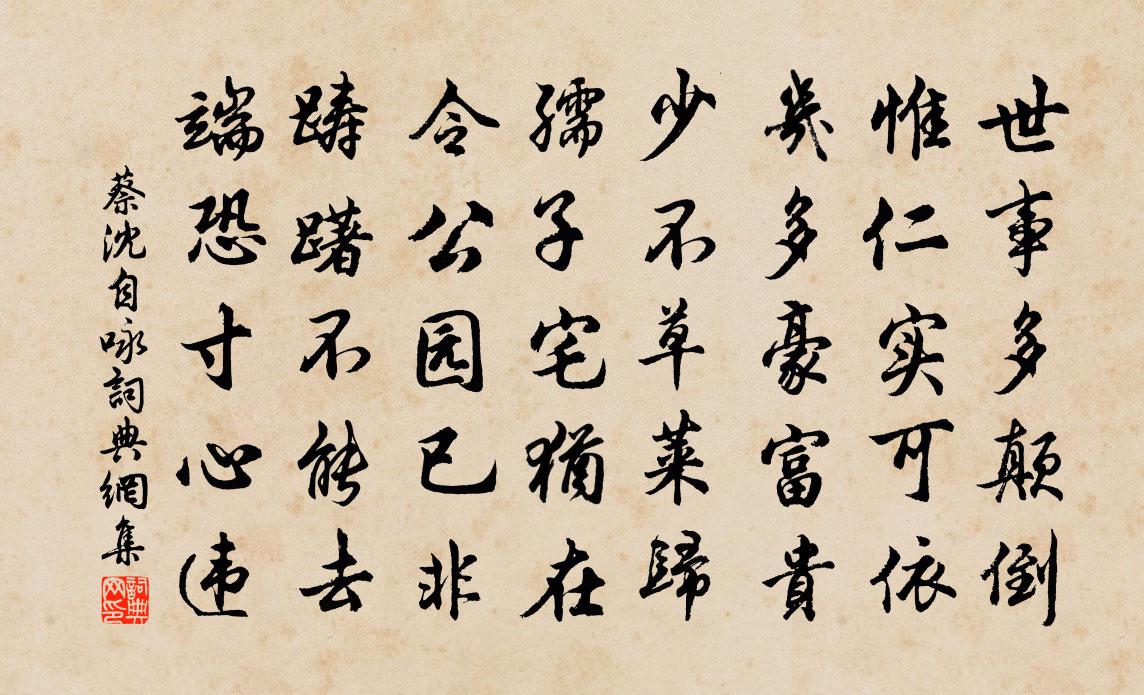 世事多颠倒
惟仁实可依
几多豪富貴
少不草莱歸
孺子宅猶在
令公园已非
踌躇不能去
端恐寸心违
蔡沈自咏詞典網集
詞典网印